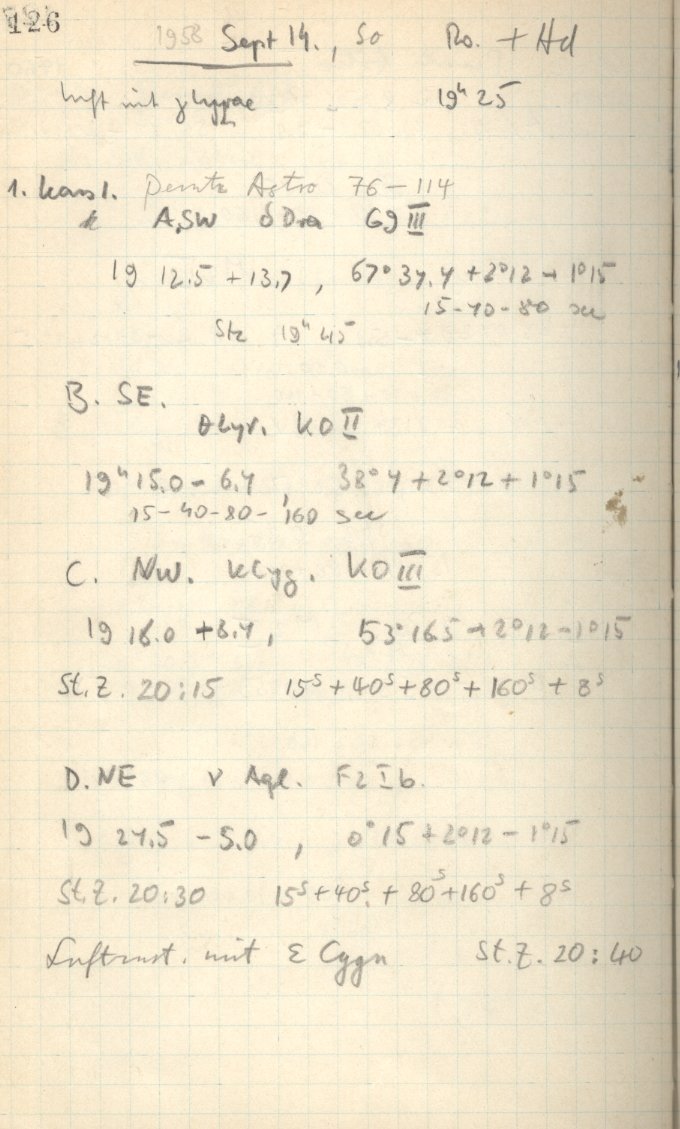 126
1958 Sept 14., So Ro. + Hd
Luft mit γ Lyrae 19ʰ 25
1. Kass1. Perutz Astro 76 – 114
A, SW δ Dra G9 III
19 12.5 + 13,7 , 67° 37,4 + 2°12 – 1°15
15-40-80 sec
Stz 19ʰ 45
B. SE.
θ Lyr. K0 II
19ʰ 15.0 – 6.4 , 38° 4 + 2°12 + 1°15
15-40-80-160 sec
C. NW. κ Cyg. K0 III
19 16.0 + 8.4 , 53° 16.5 + 2°12 – 1°15
St. Z. 20:15 15ˢ + 40ˢ + 80ˢ + 160ˢ + 8ˢ
D. NE ν Aql. F2 Ib.
19 24.5 – 5.0 , 0° 15 + 2°12 – 1°15
St. Z. 20:30 15ˢ + 40ˢ. + 80ˢ + 160ˢ + 8ˢ
Luftzust. mit ε Cygn St. Z. 20:40